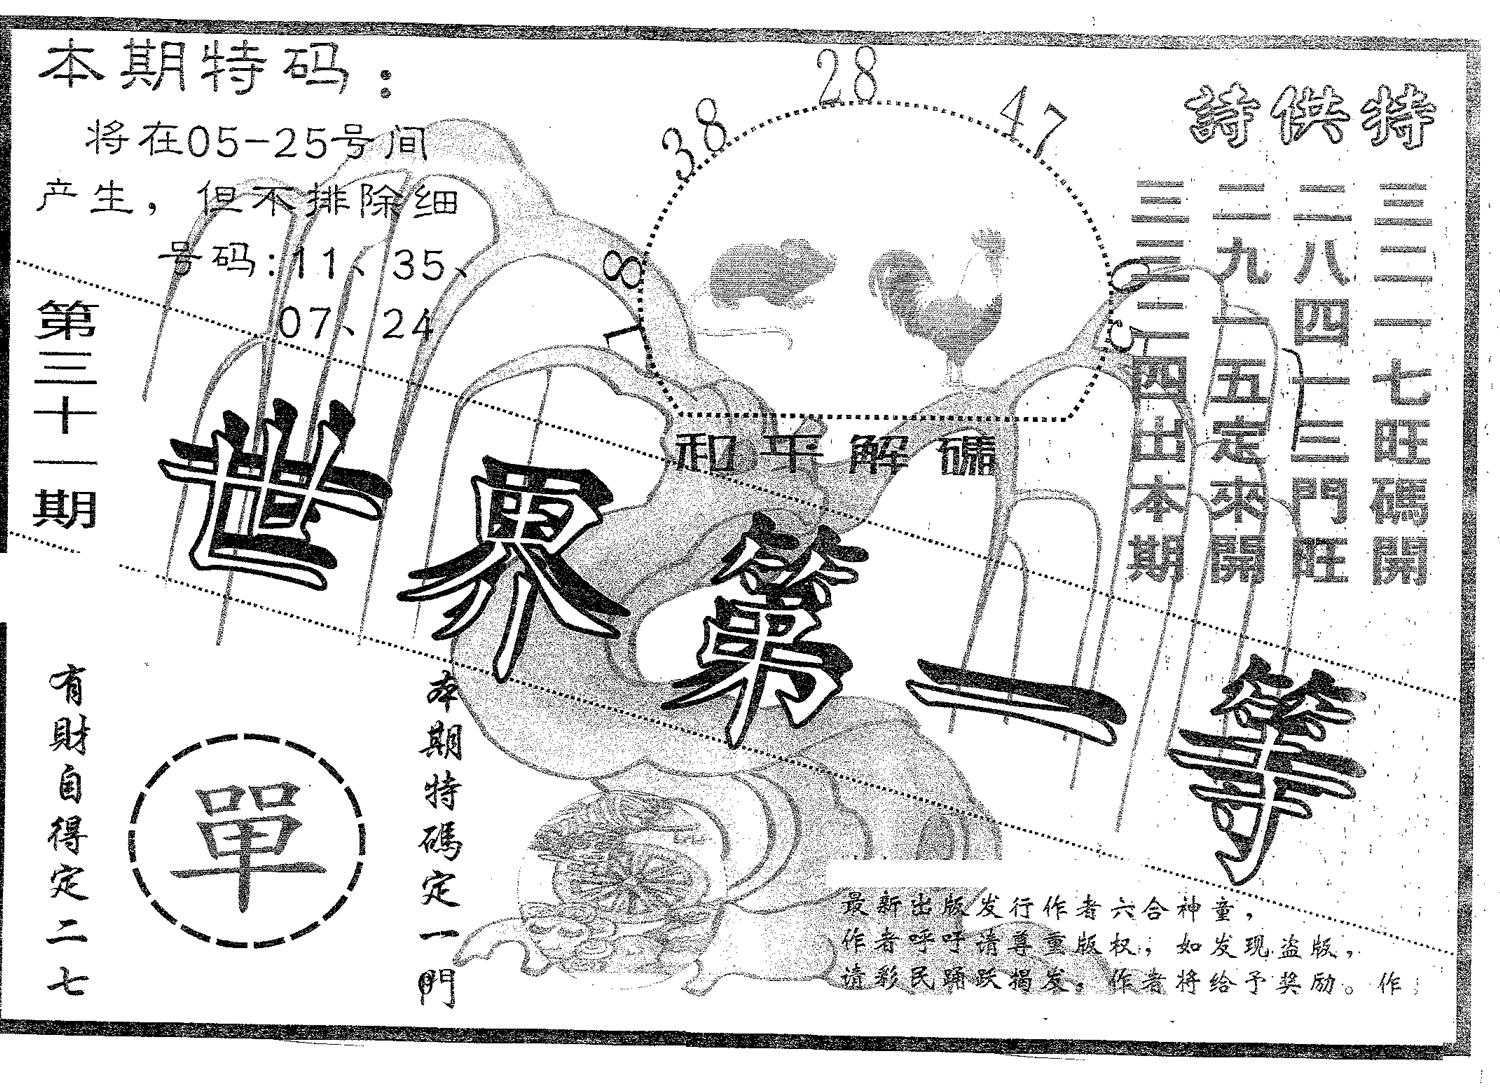 本期特码：
将在05-25号间
产生，但不排除细
号码:11、35、
07、24
第三十一期
18
38
28
47
詩供特
三二一七旺碼開
二八四一三門旺
二九一五定來開
三三二四出本期
和平解碼
世界第一等
有財自得定二七
單
本期特碼定一門
最新出版发行作者六合神童，
作者呼吁请尊重版权，如发现盗版，
请彩民踊跃揭发，作者将给予奖励。作